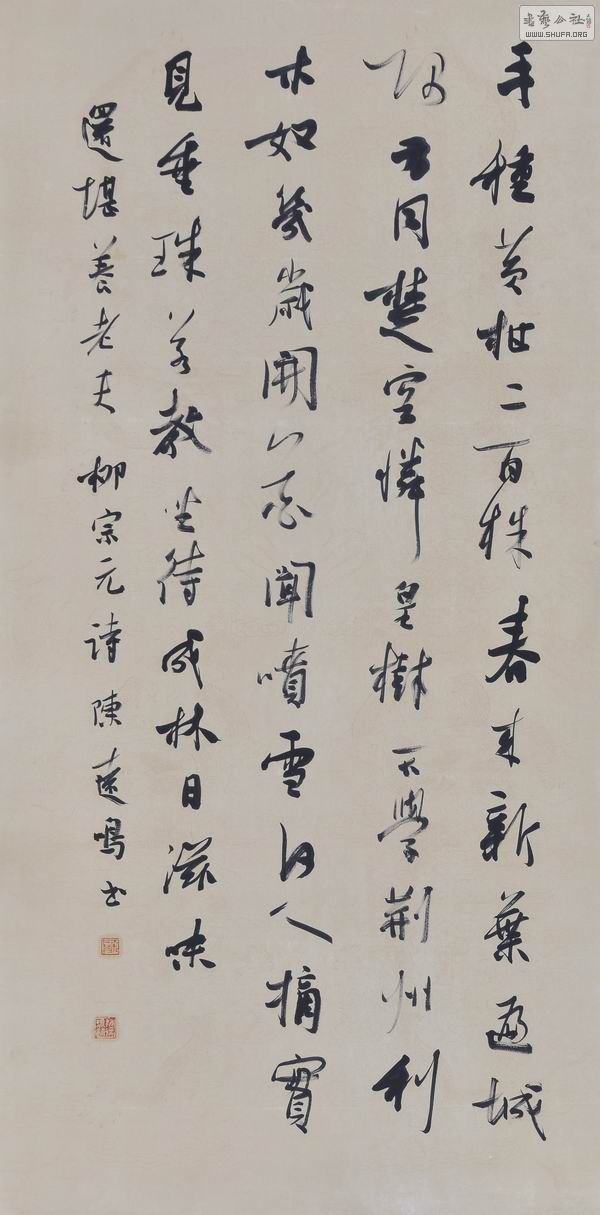 手種黃柑二百株春來新葉遍城
隅方同楚客憐皇樹不學荊州利
木奴幾歲開花聞噴雪何人摘實
見垂珠若教坐待成林日滋味
還堪養老夫 柳宗元詩 陳遠鳴书
書藝公社
WWW.SHUFA.ORG